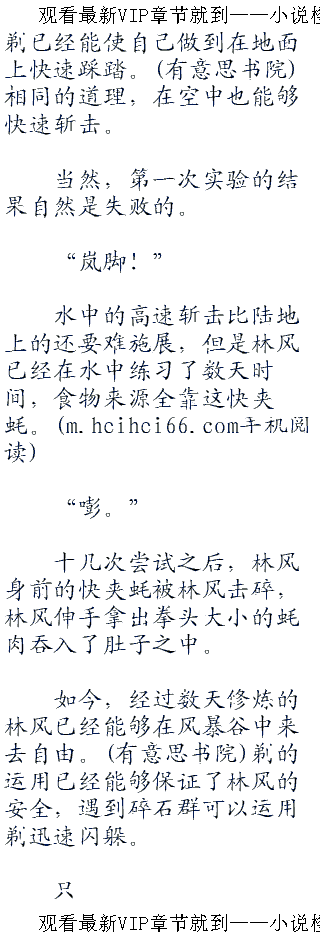 观看最新VIP章节就到——小说
剃已经能使自己做到在地面
上快速踩踏。(有意思书院)
相同的道理，在空中也能够
快速斩击。
当然，第一次实验的结
果自然是失败的。
“岚脚！”
水中的高速斩击比陆地
上的还要难施展，但是林风
已经在水中练习了数天时
间，食物来源全靠这快夹
蚝。(m.hcihci66.com手机阅
读)
“嘭。”
十几次尝试之后，林风
身前的快夹蚝被林风击碎，
林风伸手拿出拳头大小的蚝
肉吞入了肚子之中。
如今，经过数天修炼的
林风已经能够在风暴谷中来
去自由。(有意思书院)剃的
运用已经能够保证了林风的
安全，遇到碎石群可以运用
剃迅速闪躲。
只
观看最新VIP章节就到——小说